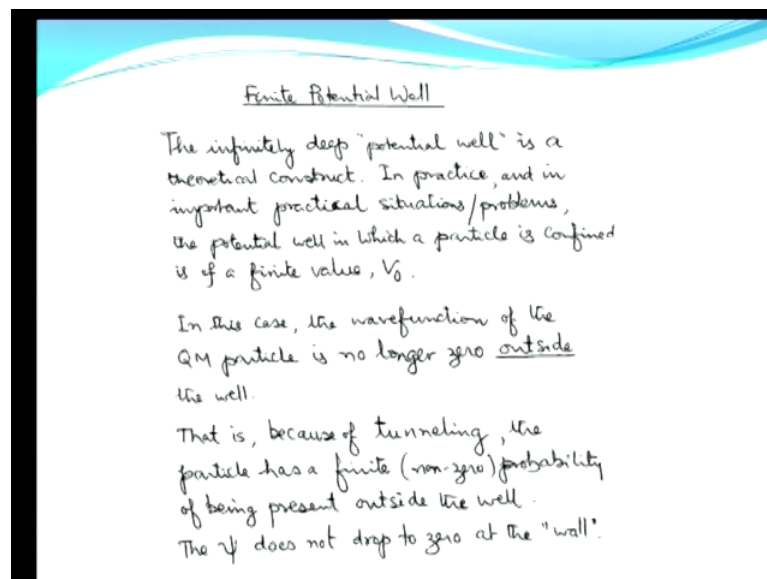 Finite Potential Well
The infinitely deep "potential well" is a
theoretical construct. In practice, and in
important practical situations/problems,
the potential well in which a particle is confined
is of a finite value, V₀.
In this case, the wavefunction of the
QM particle is no longer zero outside
the well.
That is, because of tunneling, the
particle has a finite (non-zero) probability
of being present outside the well.
The ψ does not drop to zero at the "wall".